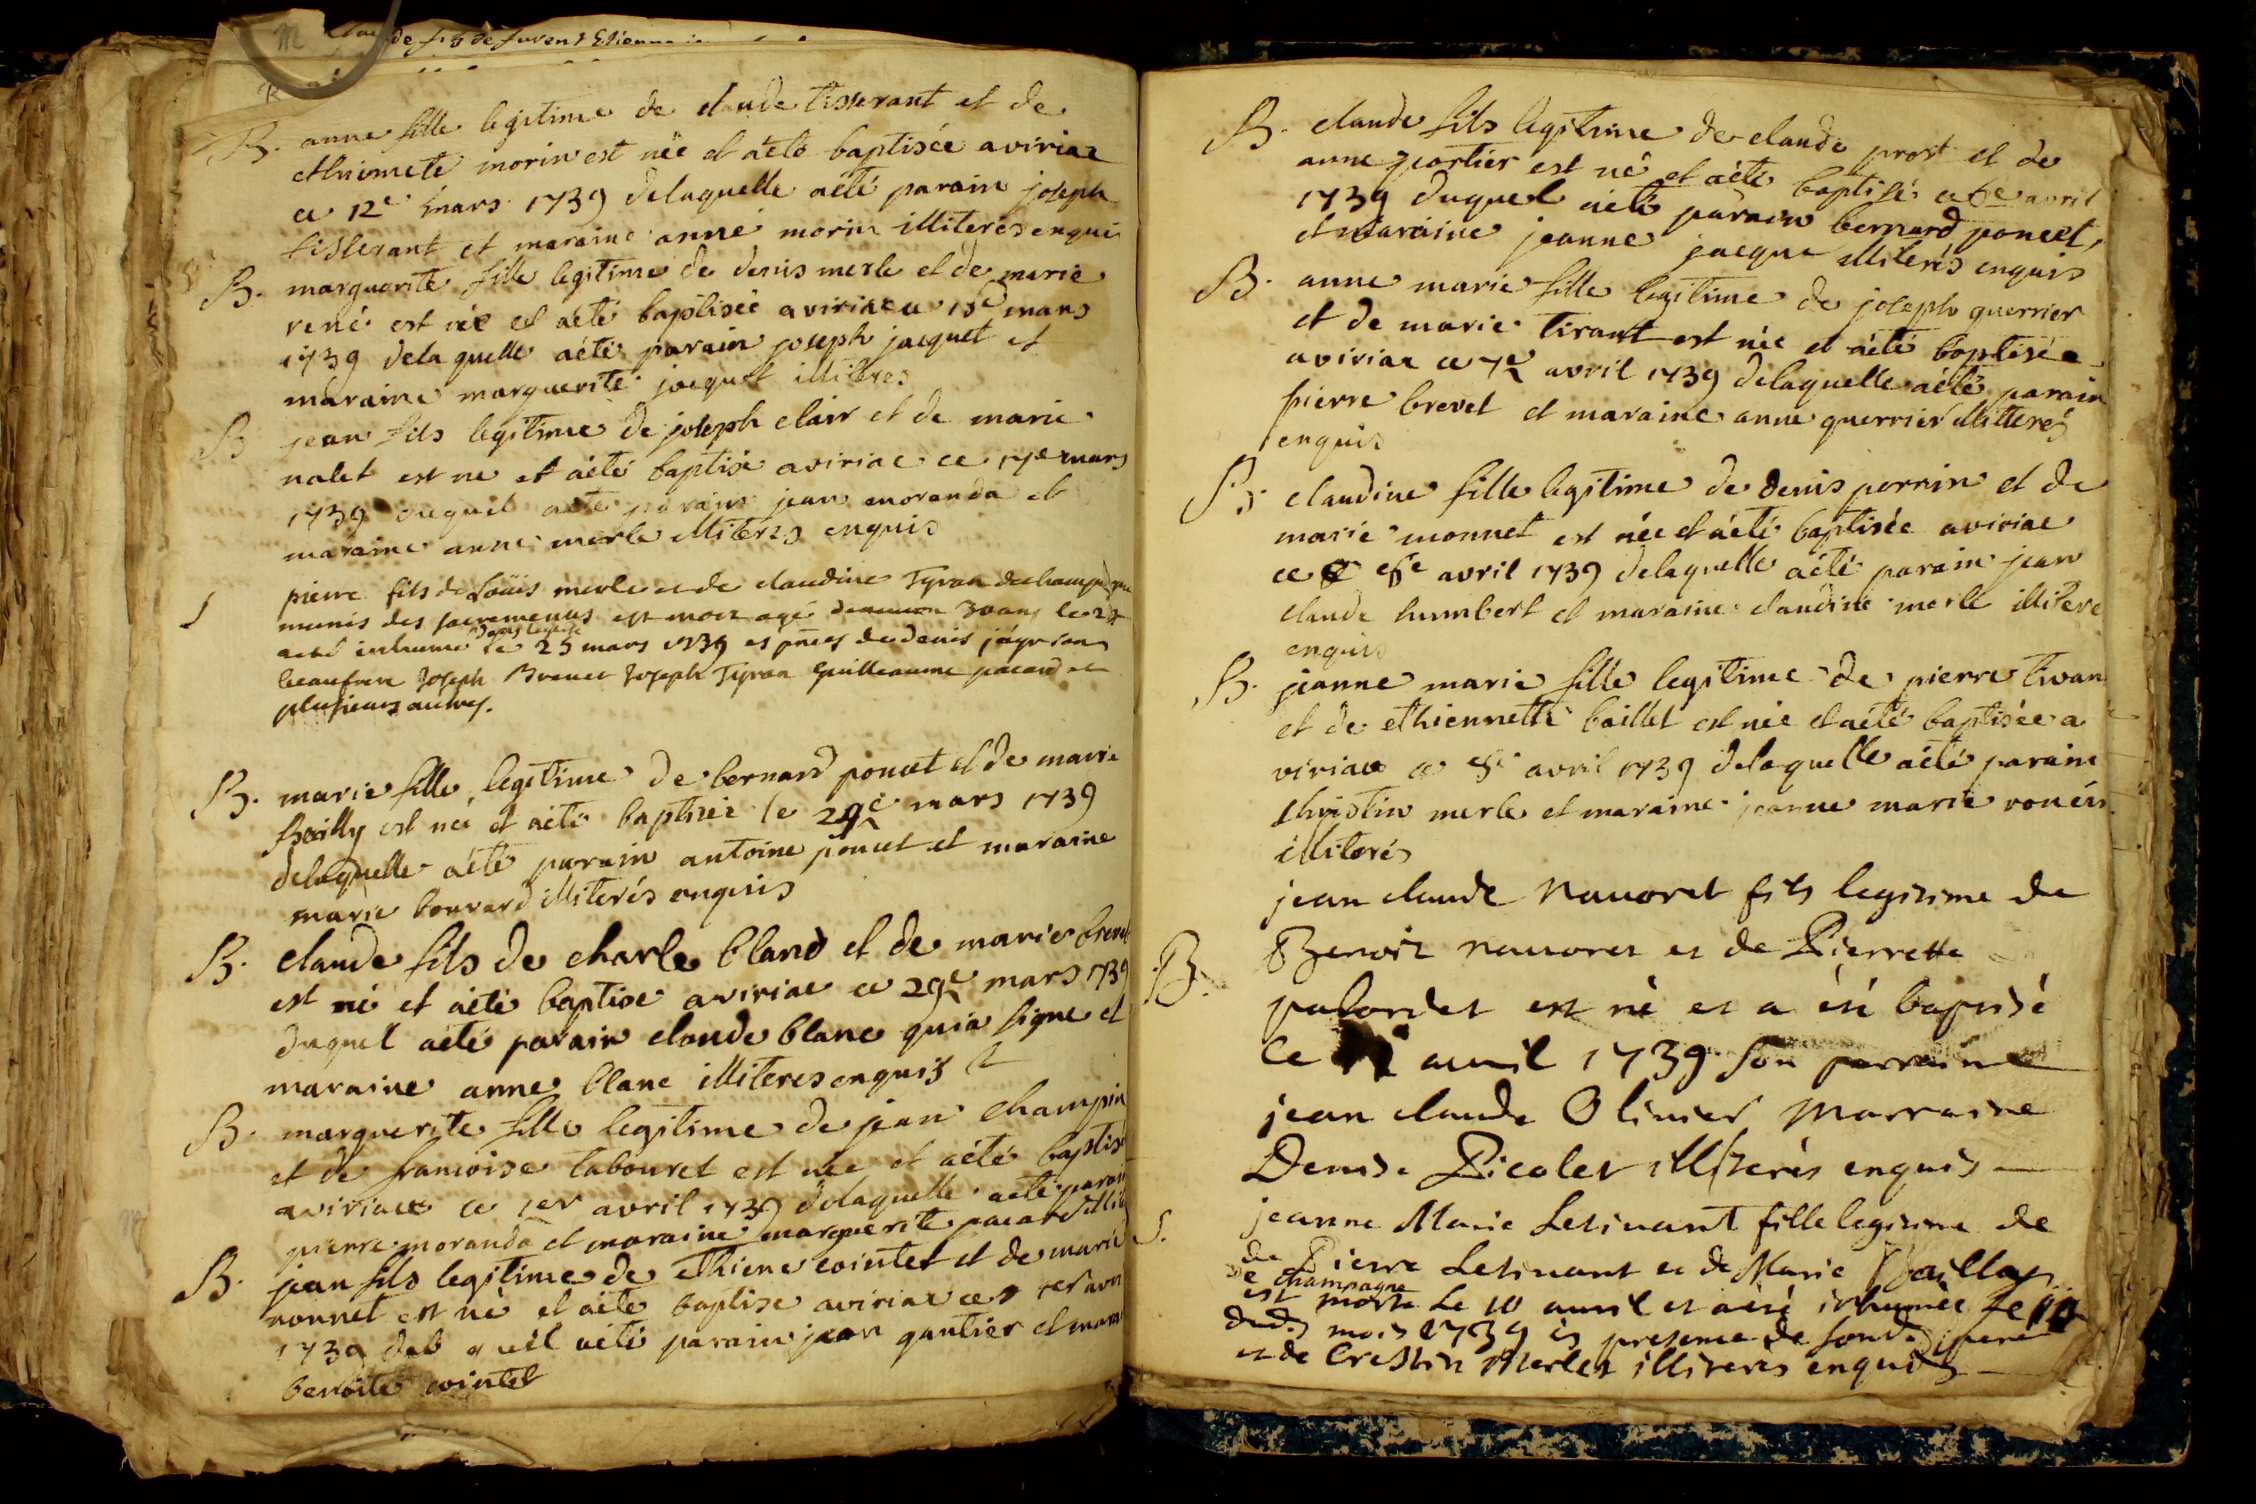 B. anne fille legitime de claude tisserant et de
ethiennete morin est née et aété baptisée aviriac
ce 12e mars 1739 delaquelle aété parain joseph
tisserant et maraine anne morin illiterés enquis
B. marguerite fille legitime de denis merle et de marie
rené est née et aété baptisée aviriac ce 15e mars
1739 delaquelle aété parain joseph jacquet et
maraine marguerite jacquet illiteres
B jean fils legitime de joseph clair et de marie
nalet est ne et aété baptise aviriac ce 17e mars
1739 duquel aété parain jean moranda et
maraine anne merle illiterés enquis
S pierre fils de Loüis merle et de claudine Tyran
munis des sacremenus est mort agé 30 ans le 24
aeté inhumé dans leglise le 25 mars 1739 es pnces de denis
beaufrere Joseph Brevet Joseph Tyran Guilleaume pacard et
plusieurs autres.
B. marie fille legitime de bernard poncet et de marie
bailly est née et aété baptisée le 29e mars 1739
delaquelle aété parain antoine poncet et maraine
marie bouvard illiterés enquis
B. claude fils de charle bland et de marie brevet
est né et aété baptise aviriac ce 29e mars 1739
duquel aété parain claude blanc quia signe et
maraine anne blanc illiteres enquis
B. marguerite fille legitime de jean champin
et de francoise tabouret est née et aété baptisé
aviriact ce 1er avril 1739 delaquelle aété parain
pierre moranda et maraine marguerite pacard illit
B. jean fils legitime de ethiene cointet et de marie
nonnet est né et aété baptise aviriac ce 1er avri
1739 parain jean gautier et mara
benoite cointet
B. claude fils legitime de claude prost et de
anne portier est né et aété baptisé ce 6e avril
1739 duquel aété parain bernard poncet,
et maraine jeanne jacque illiterés enquis
B. anne marie fille legitime de joseph guerrier
et de marie tirant est née et aété baptisée
aviriac ce 7e avril 1739 delaquelle aété parain
pierre brevet et maraine anne guerrier illitterés
enquis
B. claudine fille legitime de denis perrin et de
marie monnet est née et aété baptisée aviriac
ce 8e avril 1739 delaquelle aété parain jean
claude humbert et maraine claudine merle illitere
enquis
B. jeanne marie fille legitime de pierre tiran
et de ethiennette baillet est née et aété baptisée a
viriac ce 8e avril 1739 delaquelle aété parain
christin merle et maraine jeanne marie
illiterés
jean claude Navoret fils legitime de
B. Benoit navoret et de Pierrette
est né et a été baptisé
Le avril 1739 son parraine
jean claude Olivier Marraine
Denise Picolet illiterés enquis
S. jeanne Marie Letivant fille legitime de
de Pierre Letivant et de Marie
de champagne
est morte Le 10 avril et aété inhumée Le
dud. mois 1739 en presence de sond. pere
et de Crestin Merlet illiterés enquis